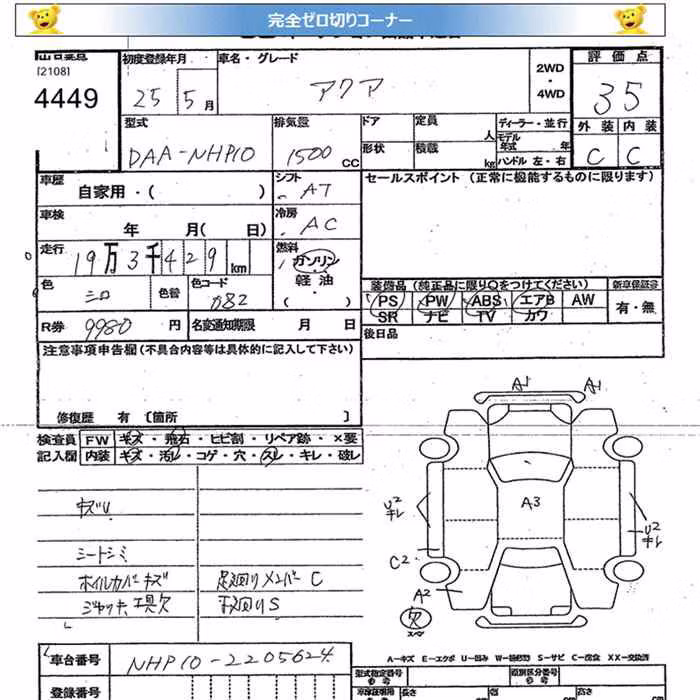 完全ゼロ切りコーナー
[2108]
4449
初度登録年月
25 5月
車名・グレード
アクア
2WD
・
4WD
評価点
35
型式
DAA-NHP10
排気量
1500 CC
ドア
定員
人
形状
積載
kg
ディーラー・並行
モデル年式
年
ハンドル 左・右
外装 内装
C C
車歴
自家用・( )
シフト
AT
セールスポイント (正常に機能するものに限ります)
車検
年 月( 日)
冷房
AC
走行
19万3千429km
燃料
ガソリン
軽油
・( )
色
シロ
色替
色コード
装備品 (純正品に限り○をつけてください)
PS PW ABS エアB AW
SR ナビ TV カワ
新車保証書
有・無
R券 9980 円
名変通知期限 月 日
後日品
注意事項申告欄(不具合内容等は具体的に記入して下さい)
修復歴 有 〔箇所 〕
検査員記入欄
FW キズ・飛石・ヒビ割・リペア跡・×要
内装 キズ・汚レ・コゲ・穴・スレ・キレ・破レ
シートシミ
ホイルカバキズ
ジャッキ、工具欠
足廻りメンバーC
下廻りS
A1 A1
A3
U2
キレ
U2
キレ
C2
A2
欠
スペア
A-キズ E-エクボ U-凹み W-補修跡 S-サビ C-腐食 XX-交換済
車台番号
NHP10-2205624
登録番号
型式指定番号
類別区分番号
長さ
cm
幅
cm
高さ
cm